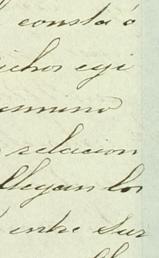 consta ó
ichos egi
esmino
relacion
llegan los
entre sur